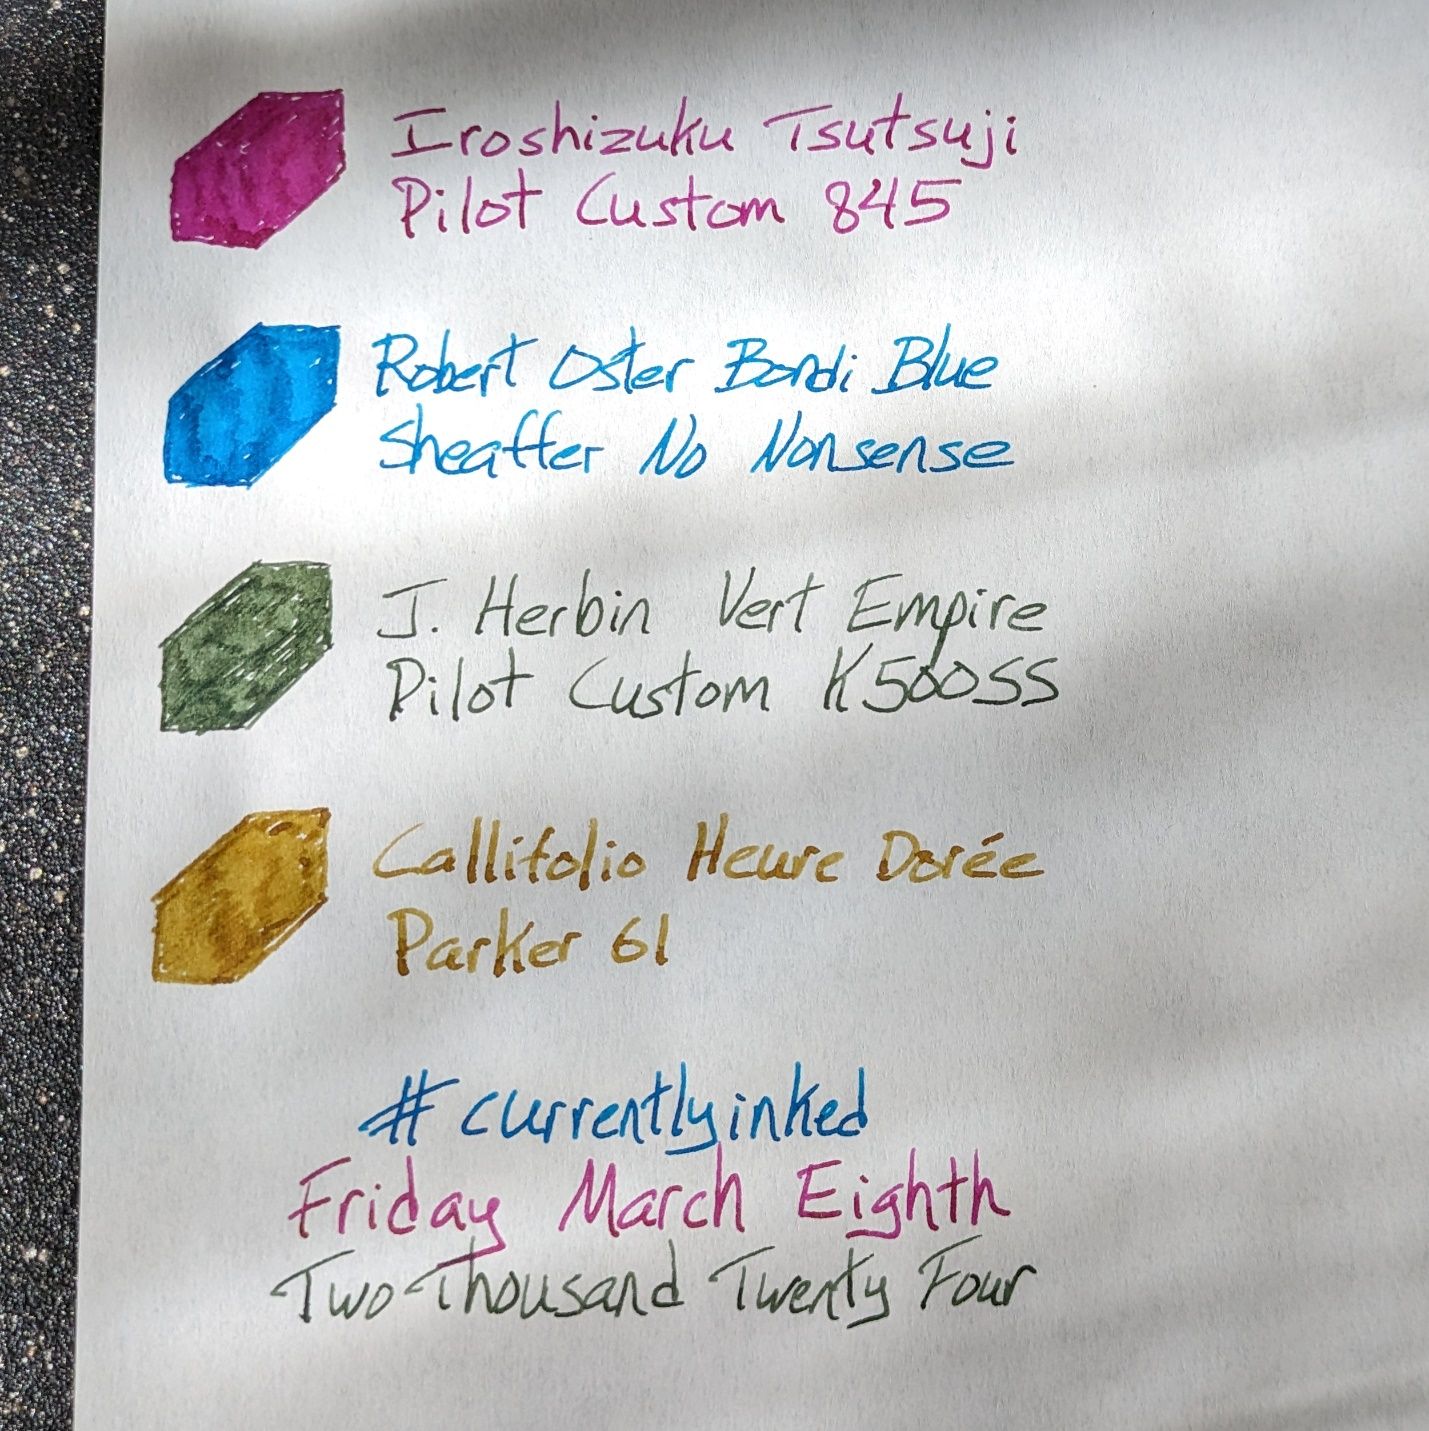 Iroshizuku Tsutsuji
Pilot Custom 845
Robert Oster Bondi Blue
Sheaffer No Nonsense
J. Herbin Vert Empire
Pilot Custom K500SS
Callifolio Heure Dorée
Parker 61
#currentlyinked
Friday March Eighth
Two Thousand Twenty Four